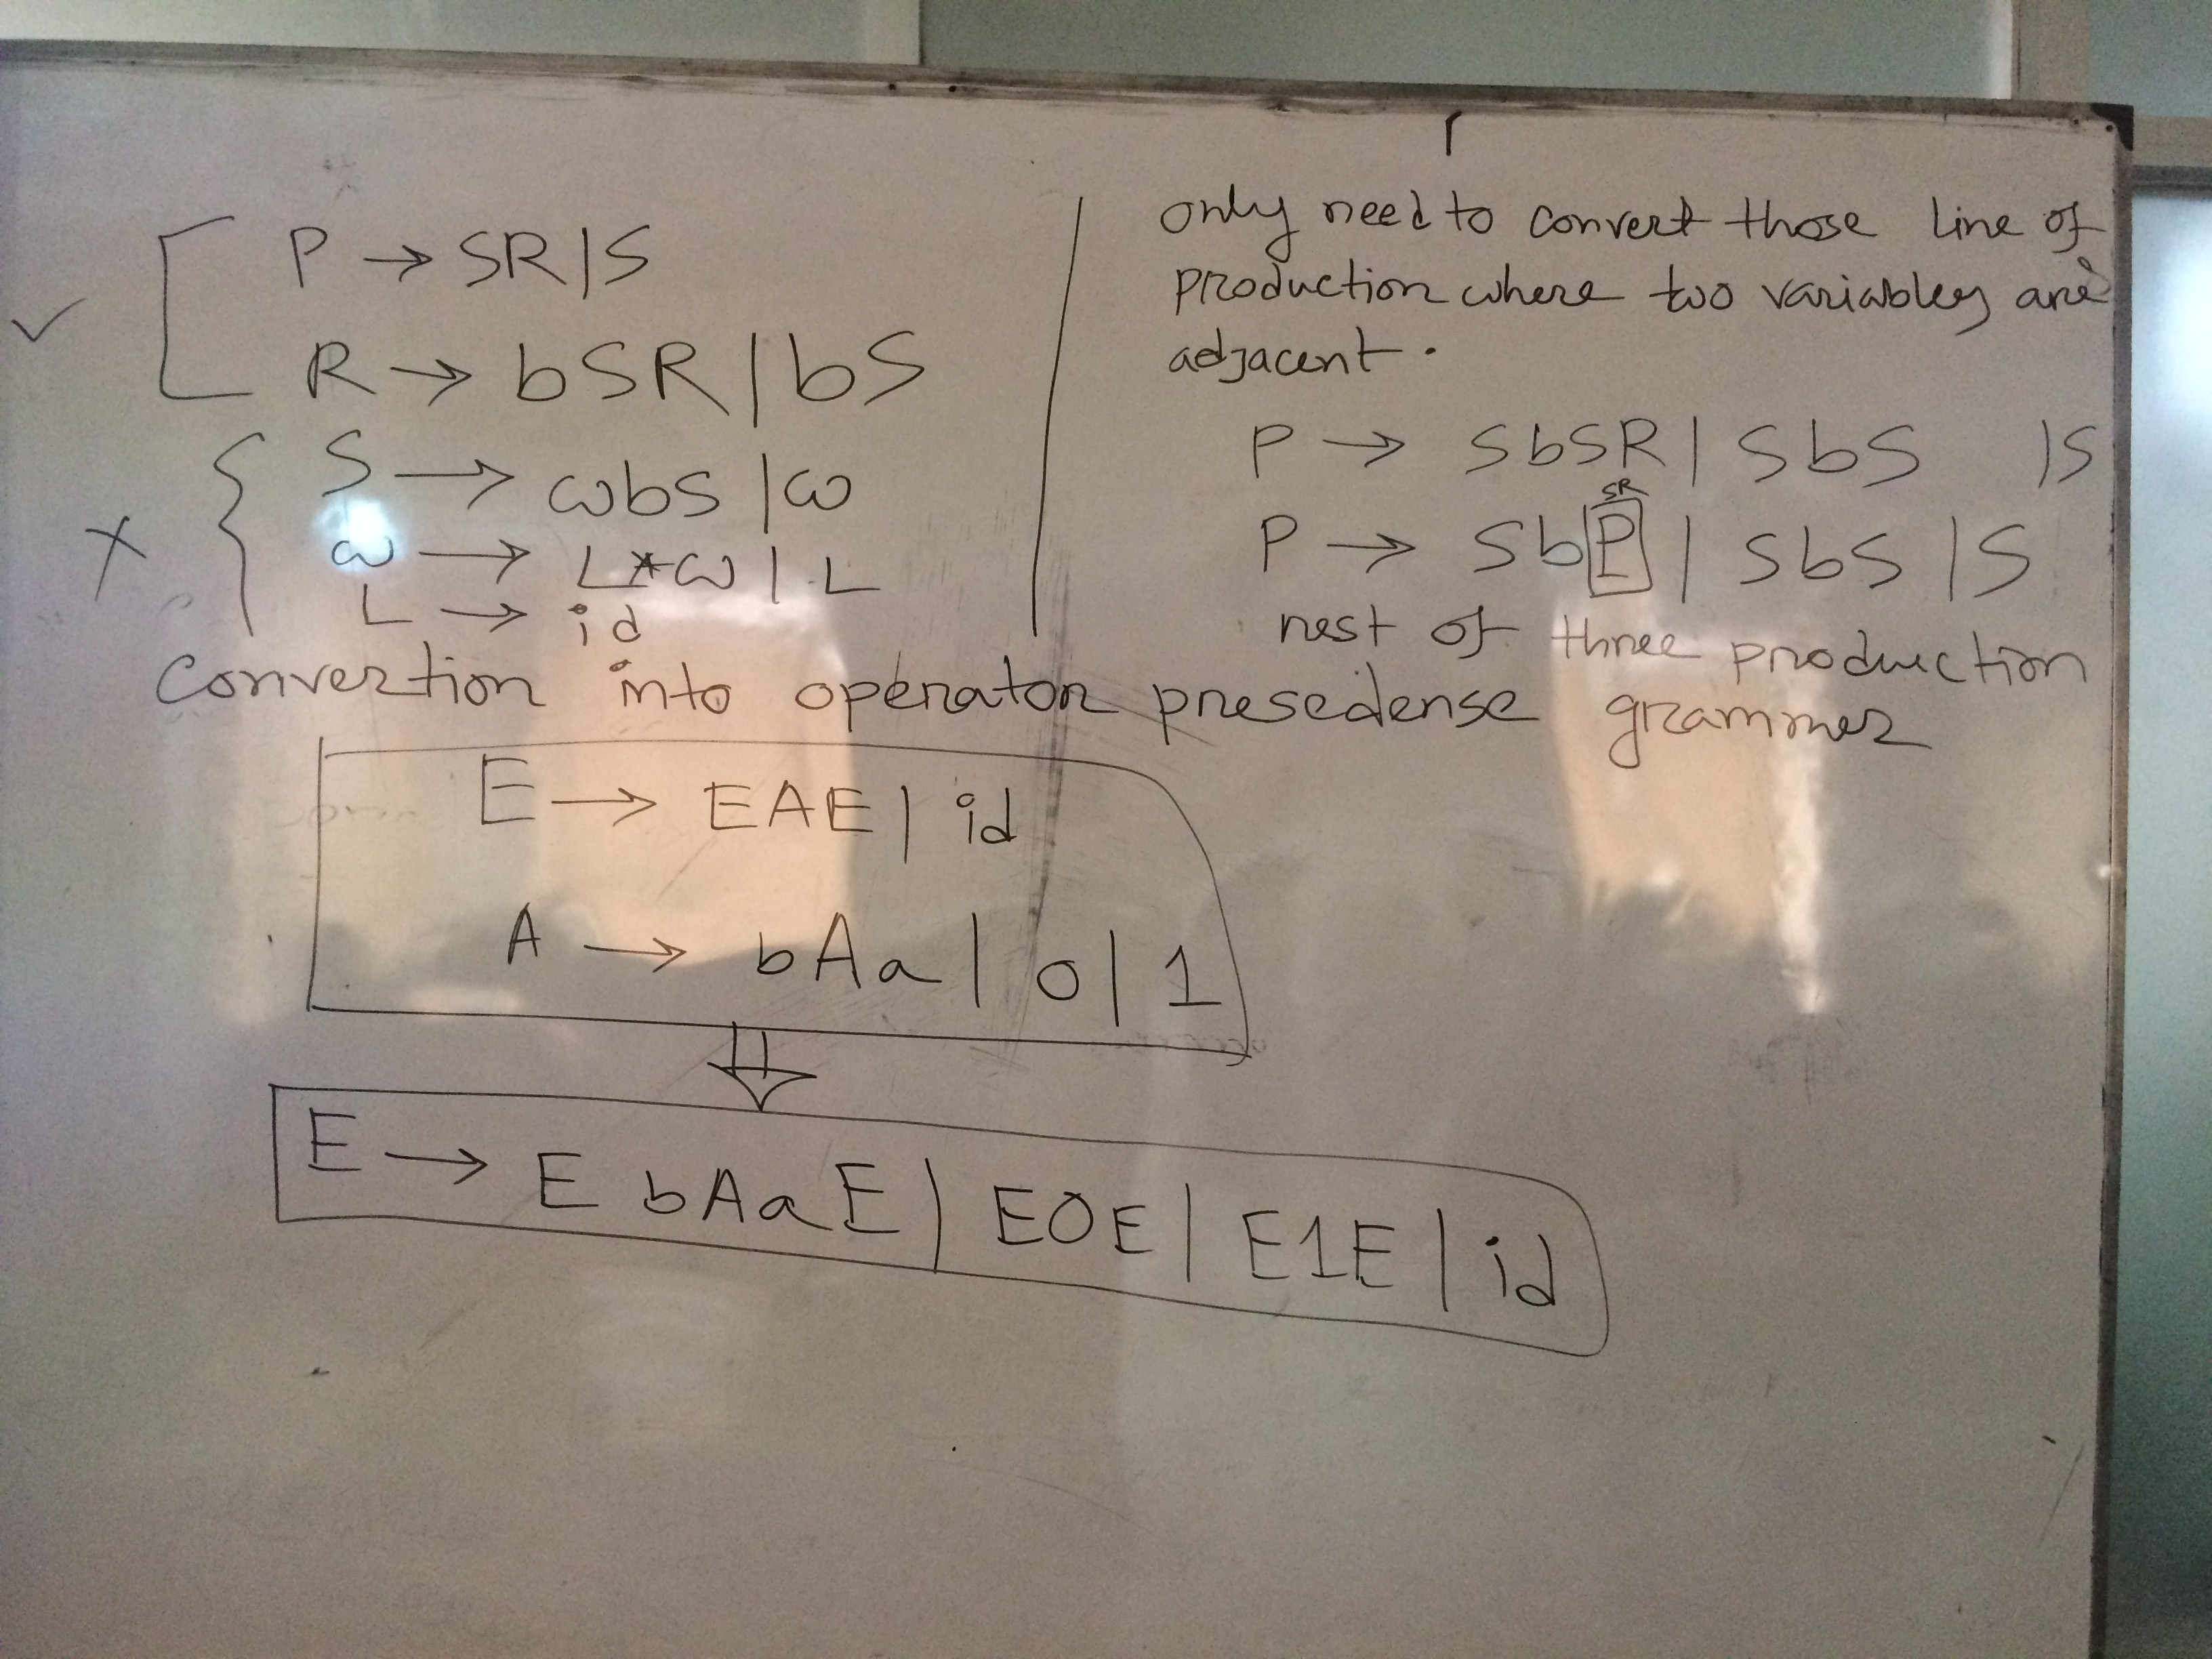 P → SR | S
R → bSR | bS
S → wbS | w
w → L*w | L
L → id
only need to convert those line of
production where two variables are
adjacent.
P → SbSR | SbS | S
SR
P → SbP | SbS | S
rest of three production
convertion into operator presedense grammer
E → EAE | id
A → bAa | 0 | 1
E → E bAa E | E0E | E1E | id